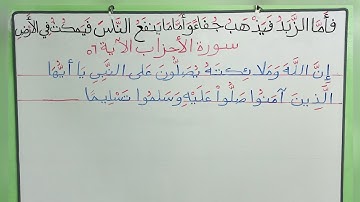 فأَمَّا الزَّبَدُ فَيَذْهَبُ جُفَاءً وَأَمَّا مَا يَنفَعُ النَّاسَ فَيَمْكُثُ فِي الأَرْضِ
سورة الأحزاب الآية ٥٦
إِنَّ اللَّهَ وَمَلَائِكَتَهُ يُصَلُّونَ عَلَى النَّبِيِّ يَا أَيُّهَا
الَّذِينَ آمَنُوا صَلُّوا عَلَيْهِ وَسَلِّمُوا تَسْلِيمًا